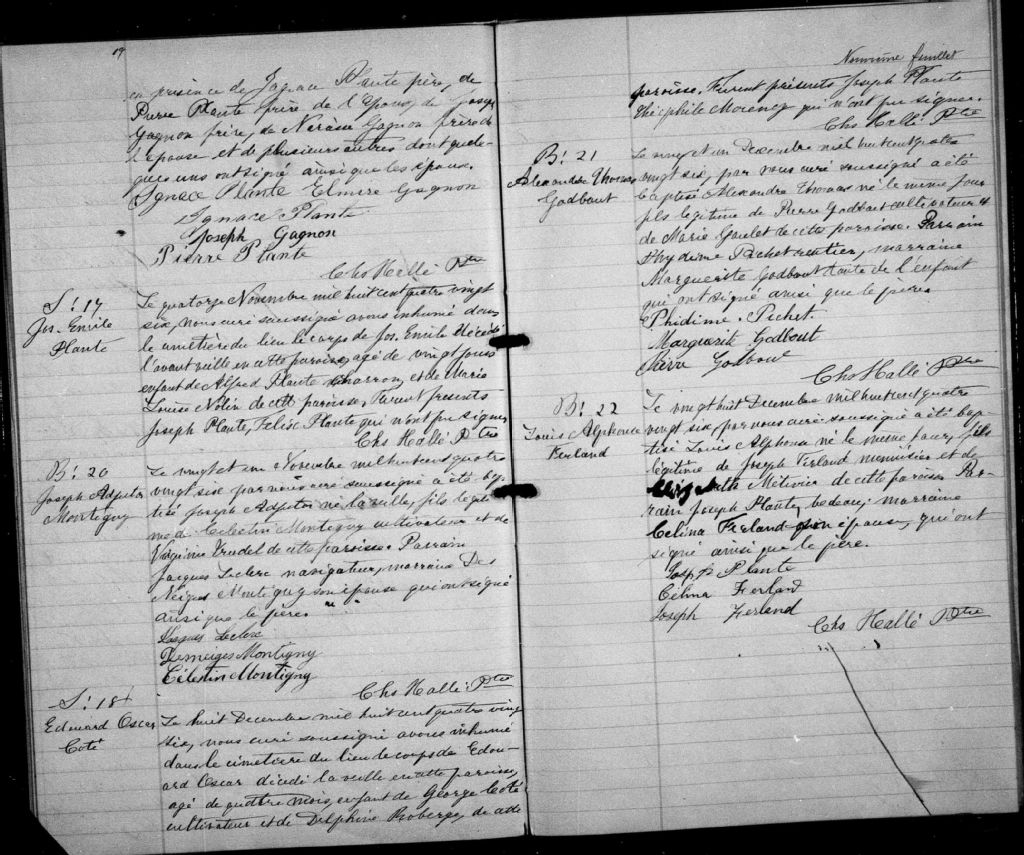 19
en présence de Ignace Plante père, de
Pierre Plante frère de l'Epoux, de Joseph
Gagnon frère, de Nérée Gagnon frère de
l'Epouse et de plusieurs autres dont quel-
ques uns ont signé ainsi que les époux.
Ignace Plante Elmire Gagnon
Ignace Plante
Joseph Gagnon
Pierre Plante
Chs Hallé Ptre
S: 17
Jos. Emile
Plante
Le quatorze Novembre mil huit cent quatre vingt
six, nous curé soussigné avons inhumé dans
le cimetière du lieu le corps de Jos. Emile décédé
l'avant veille en cette paroisse, agé de vingt jours
enfant de Alfred Plante charron, et de Marie
Louise Nolin de cette paroisse. Furent presents
Joseph Plante, Felix Plante qui n'ont pu signer
Chs Hallé Ptre
B: 20
Joseph
Montigny
Le vingt et un Novembre mil huit cent quatre
vingt six par nous curé soussigné a été bap-
tisé Joseph né la veille, fils légiti
me de Celestin Montigny cultivateur et de
Virginie Trudel de cette paroisse. Parrain
Jacques Leclerc navigateur, marraine Des
Neiges Montigny son épouse qui ont signé
ainsi que le père
Jaques Leclerc
Demeiges Montigny
Célestin Montigny
Chs Hallé Ptre
S: 18
Edouard Oscar
Coté
Le huit Decembre mil huit cent quatre vingt
six, nous curé soussigné avons inhumé
dans le cimetière du lieu le corps de Edou-
ard Oscar décédé la veille en cette paroisse,
agé de quatre mois, enfant de George Coté
cultivateur et de Delphine Roberge, de cette
feuillet
paroisse, Furent présents Joseph Plante
Théophile Morency qui n'ont pu signer.
Chs Hallé Ptre
B: 21
Alexandre Thomas
Godbout
Le vingt et un Decembre mil huit cent quatre
vingt six, par nous curé soussigné a été
baptisé Alexandre Thomas né le meme jour
fils légitime de Pierre Godbout cultivateur et
de Marie Goulet de cette paroisse. Parrain
Phydime Pichet rentier, marraine
Marguerite Godbout tante de l'enfant
qui ont signé ainsi que le père
Phidime Pichet.
Marguerite Godbout
Pierre Godbout
Chs Hallé Ptre
B: 22
Louis Alphonse
Ferland
Le vingt huit Decembre mil huit cent quatre
vingt six, par nous curé soussigné a été bap-
tisé Louis Alphonse né le meme jour, fils
légitime de Joseph Ferland menuisier et de
Métivier de cette paroisse Par-
rain Joseph Plante, bedeau, marraine
Célina Ferland son épouse, qui ont
signé ainsi que le père.
Joseph Plante
Célina Ferland
Joseph Ferland
Chs Hallé Ptre